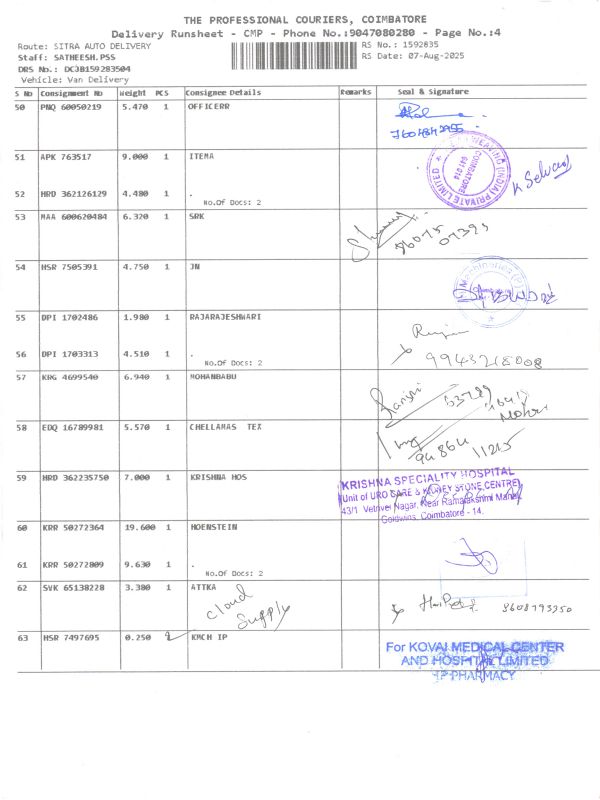 THE PROFESSIONAL COURIERS, COIMBATORE
Delivery Runsheet - CMP - Phone No.:9047080280 - Page No.:4
Route: SITRA AUTO DELIVERY RS No.: 1592835
Staff: SATHEESH.PSS RS Date: 07-Aug-2025
DRS No.: DCJB159283504
Vehicle: Van Delivery
S No Consignment No Weight PCS Consignee Details Remarks Seal & Signature
50 PNQ 60050219 5.470 1 OFFICERR
51 APK 763517 9.000 1 ITEMA
PRIVATE LIMITED
COIMBATORE
641 014
K Selvaraj
52 HRD 362126129 4.480 1 .
No.Of Docs: 2
53 MAA 600620484 6.320 1 SRK
96075
07395
54 HSR 7505391 4.750 1 JN
55 DPI 1702486 1.980 1 RAJARAJESHWARI
56 DPI 1703313 4.510 1 .
No.Of Docs: 2
57 KRG 4699540 6.940 1 MOHANBABU
58 EDQ 16789981 5.570 1 CHELLAMAS TEX
94864 11215
59 HRD 362235750 7.000 1 KRISHNA HOS
KRISHNA SPECIALITY HOSPITAL
(Unit of URO CARE & KIDNEY STONE CENTRE)
43/1 Vetrivel Nagar, Near Ramalakshmi Mahal,
Goldwins, Coimbatore - 14.
60 KRR 50272364 19.600 1 HOENSTEIN
61 KRR 50272809 9.630 1 .
No.Of Docs: 2
62 SVK 65138228 3.380 1 ATTKA
Cloud
Supply
63 HSR 7497695 0.250 KMCH IP
For KOVAI MEDICAL CENTER
AND HOSPITAL LIMITED
IP PHARMACY